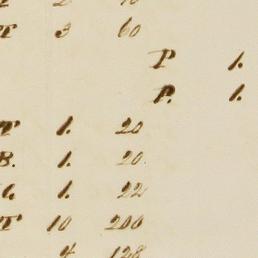 T 3 60
P 1.
P. 1.
T 1. 20
B. 1. 20.
C. 1. 22
T 10 200
4 128